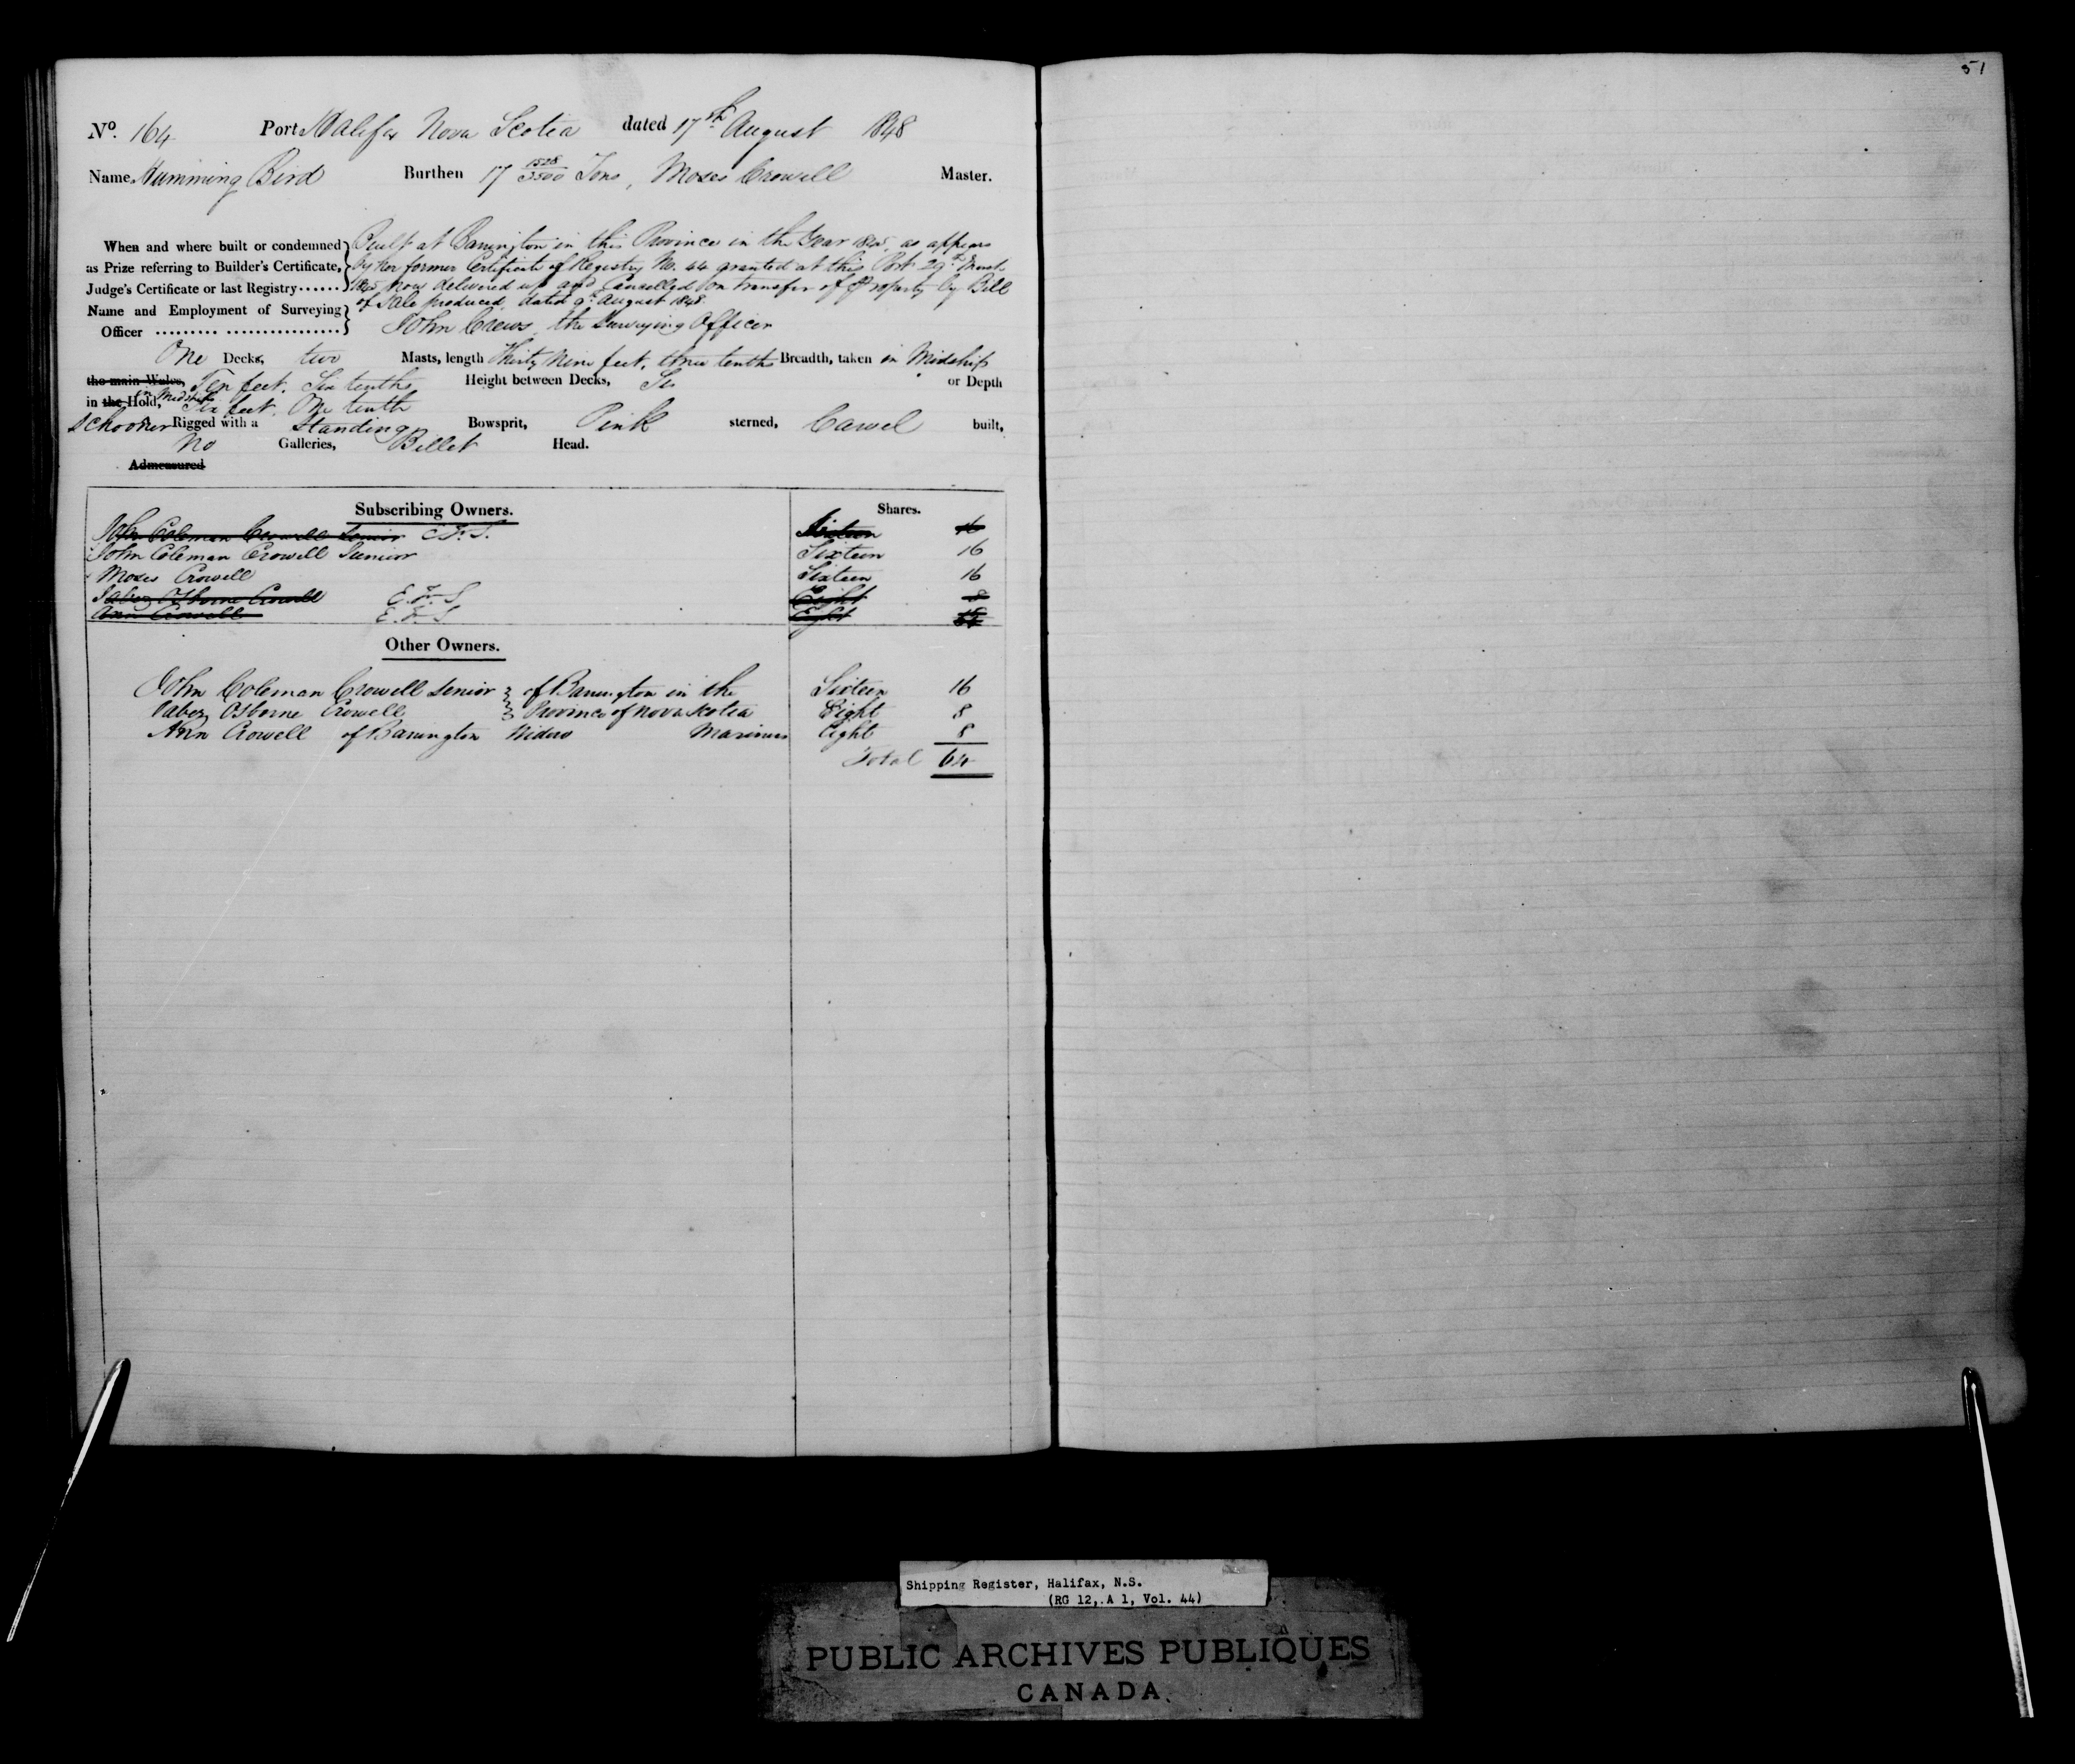 51
No. 164 Port Halifax Nova Scotia dated 17th August 1848
Name Humming Bird Burthen 17 1528/3500 Tons, Moses Crowell Master.
When and where built or condemned as Prize referring to Builder's Certificate, Judge's Certificate or last Registry......
Built at Barrington in this Province in the Year 1845, as appears
by her former Certificate of Registry No. 44 granted at this Port 29th March
1845 now delivered up and Cancelled on transfer of Property by Bill
of Sale produced, dated 9th August 1848
Name and Employment of Surveying Officer ......... ................
John Crews, the Surveying Officer
One Decks, two Masts, length Thirty Nine feet, three tenths Breadth, taken in Midship
the main Wales, Ten feet, Six tenths Height between Decks, or Depth
in the Hold, in Midships Six feet, One tenth
Schooner Rigged with a Standing Bowsprit, Pink sterned, Carvel built,
No Galleries, Billet Head.
Admeasured
Subscribing Owners. Shares.
John Coleman Crowell Senior Sixteen 16
John Coleman Crowell Junior Sixteen 16
Moses Crowell Sixteen 16
Jabez Osborne Crowell E.F.S Eight 8
Ann Crowell E.F.S Eight
Other Owners.
John Coleman Crowell Senior } of Barrington in the Sixteen 16
Jabez Osborne Crowell } Province of Nova Scotia Eight 8
Ann Crowell of Barrington Widow Mariners Eight 8
Total 64
Shipping Register, Halifax, N.S.
(RG 12, A 1, Vol. 44)
PUBLIC ARCHIVES PUBLIQUES
CANADA